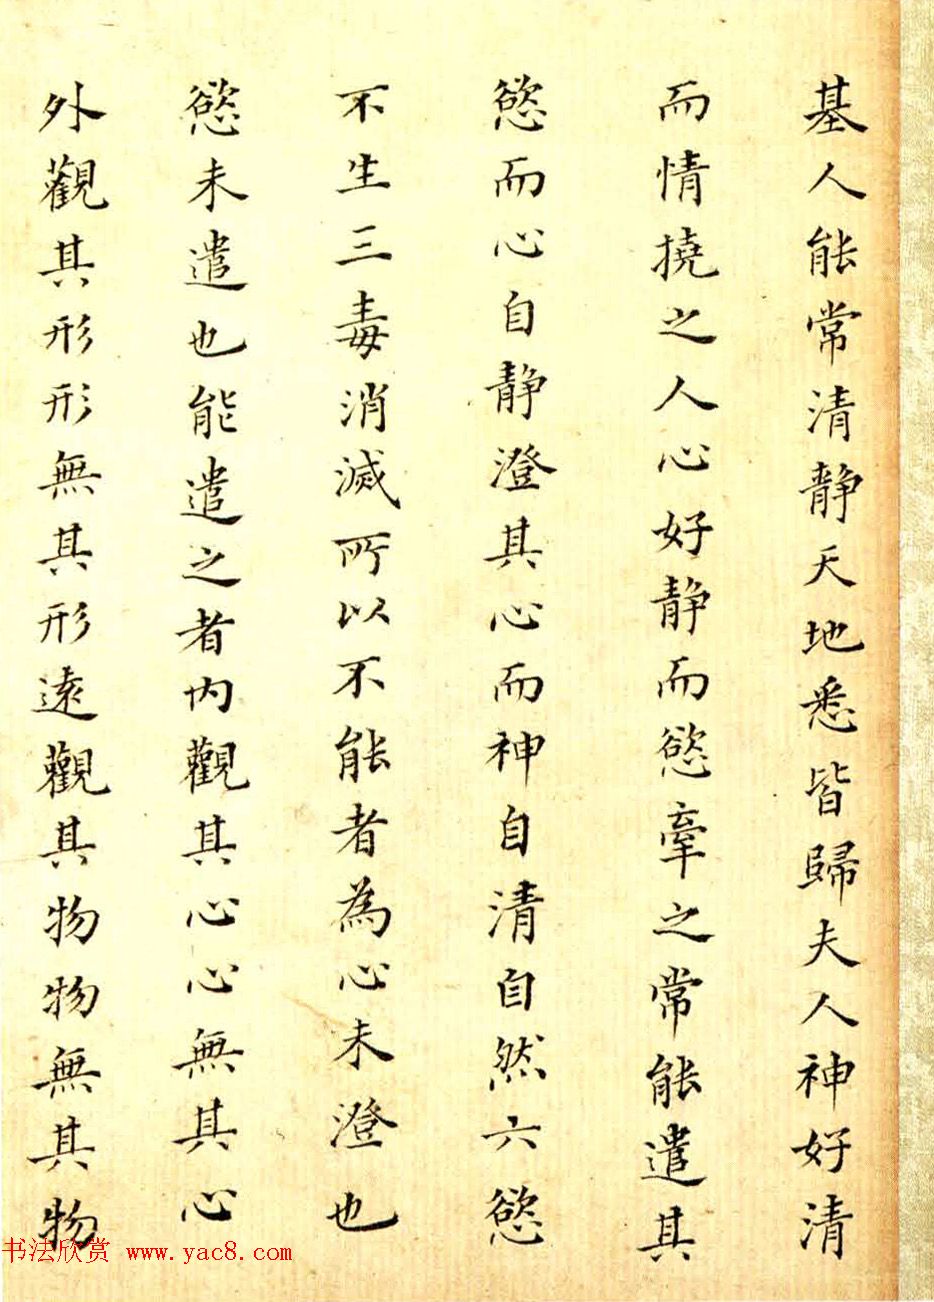 基人能常清静天地悉皆歸夫人神好清
而情撓之人心好静而慾牽之常能遣其
慾而心自静澄其心而神自清自然六慾
不生三毒消滅所以不能者為心未澄也
慾未遣也能遣之者内觀其心心無其心
外觀其形形無其形遠觀其物物無其物
书法欣赏 www.yac8.com